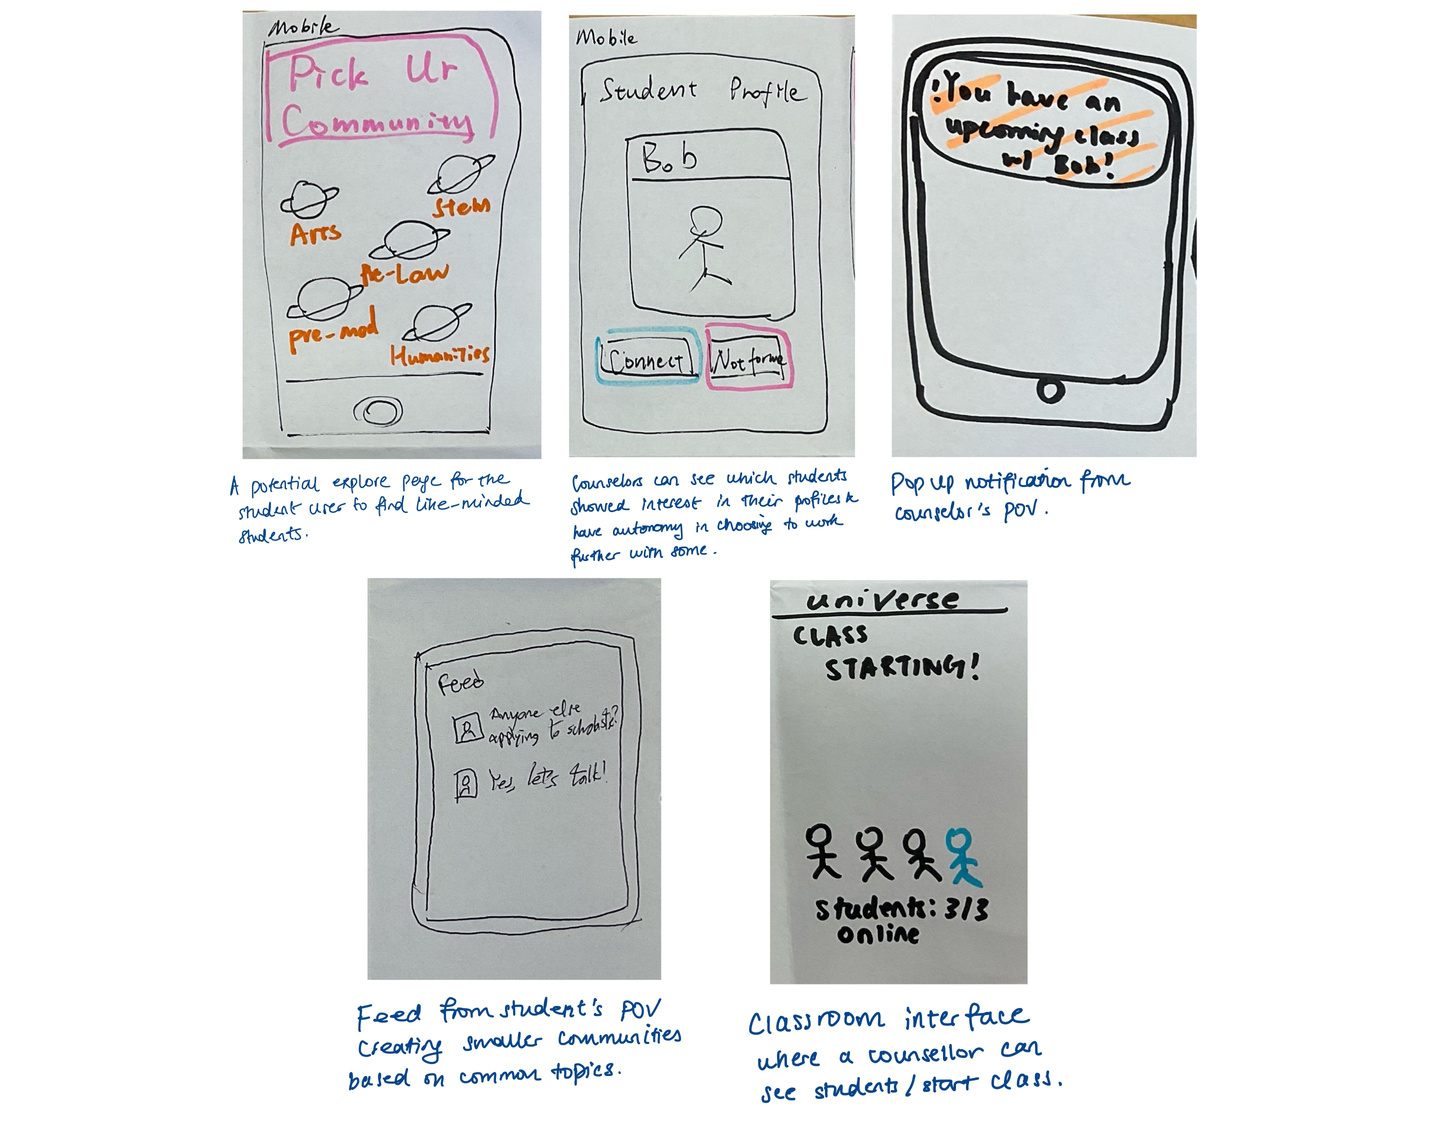 Mobile
Pick Ur
Community
Stem
Arts
Pre-Law
pre-med
Humanities
A potential explore page for the
student user to find like-minded
students.
Mobile
Student Profile
Bob
Connect
Not for me
Counselors can see which students
showed interest in their profiles &
have autonomy in choosing to work
further with some.
! You have an
upcoming class
w/ Bob!
Pop up notification from
counselor's POV.
Feed
Anyone else
applying to
Yes, let's talk!
Feed from student's POV
creating smaller communities
based on common topics.
universe
CLASS
STARTING!
Students: 3/3
online
Classroom interface
where a counsellor can
see students/start class.